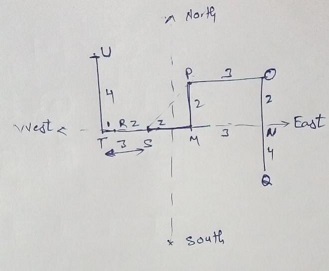 North
U
P 3 O
4 2 2
West T R 2 S 2 M 3 N East
3 4
Q
South